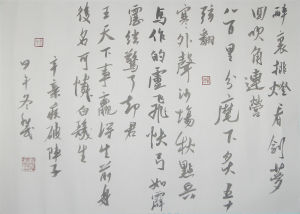 醉裏挑燈看劍夢
回吹角連營
八百里分麾下炙五十
弦翻
塞外聲沙場秋點兵
馬作的盧飛快弓如霹
靂弦驚了却君
王天下事贏得生前身
後名可憐白髮生
辛棄疾破陣子
甲午冬